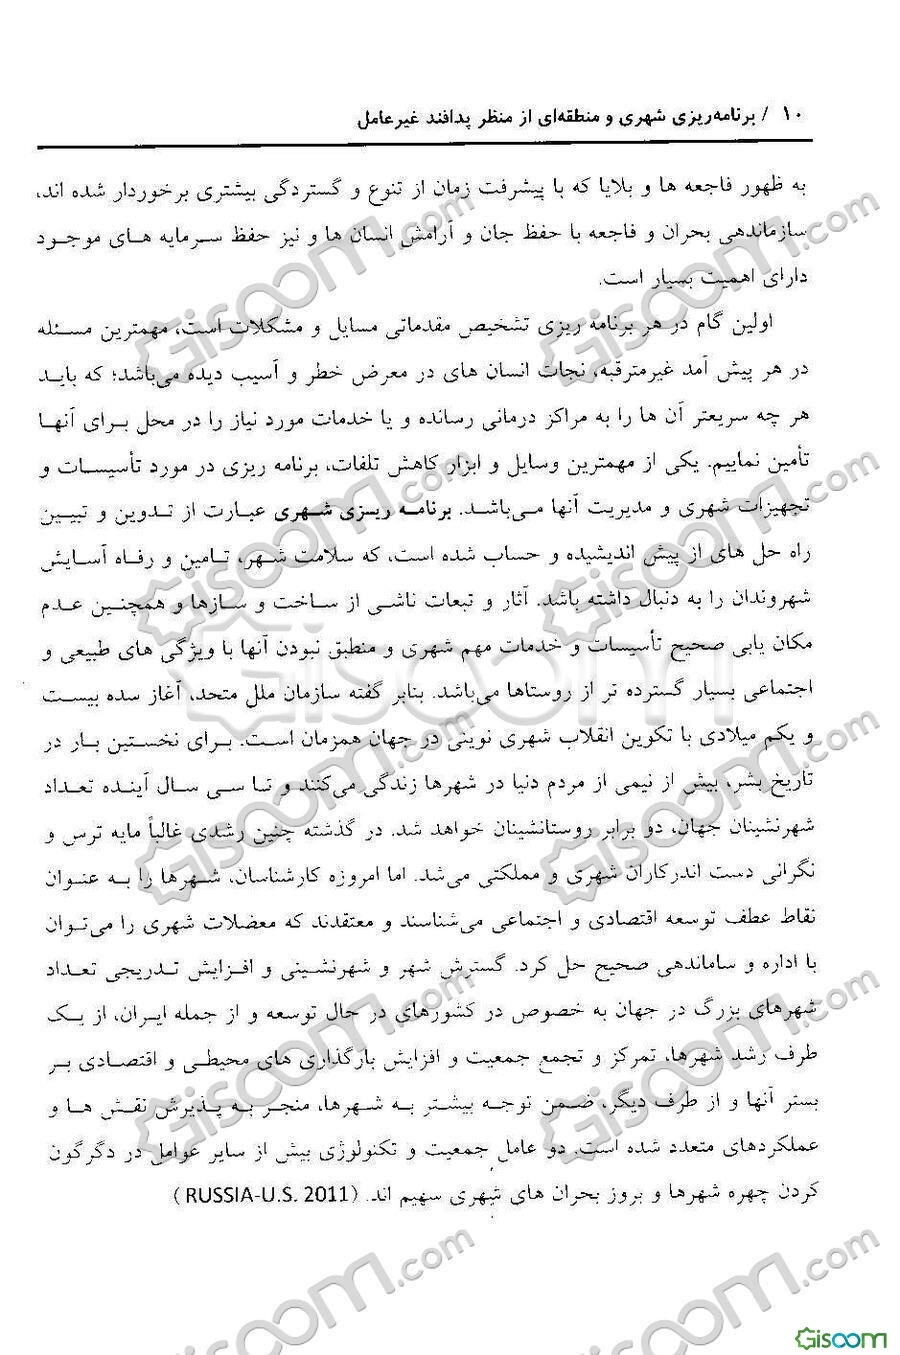 ۱۰ / برنامه‌ریزی شهری و منطقه‌ای از منظر پدافند غیرعامل
به ظهور فاجعه ها و بلایا که با پیشرفت زمان از تنوع و گستردگی بیشتری برخوردار شده اند،
سازماندهی بحران و فاجعه با حفظ جان و آرامش انسان ها و نیز حفظ سرمایه های موجود
دارای اهمیت بسیار است.
اولین گام در هر برنامه ریزی تشخیص مقدماتی مسایل و مشکلات است، مهمترین مسئله
در هر پیش آمد غیرمترقبه، نجات انسان های در معرض خطر و آسیب دیده می‌باشد؛ که باید
هر چه سریعتر آن ها را به مراکز درمانی رسانده و یا خدمات مورد نیاز را در محل برای آنها
تأمین نماییم. یکی از مهمترین وسایل و ابزار کاهش تلفات، برنامه ریزی در مورد تأسیسات و
تجهیزات شهری و مدیریت آنها می‌باشد. برنامه ریزی شهری عبارت از تدوین و تبیین
راه حل های از پیش اندیشیده و حساب شده است، که سلامت شهر، تامین و رفاه آسایش
شهروندان را به دنبال داشته باشد. آثار و تبعات ناشی از ساخت و سازها و همچنین عدم
مکان یابی صحیح تأسیسات و خدمات مهم شهری و منطبق نبودن آنها با ویژگی های طبیعی و
اجتماعی بسیار گسترده تر از روستاها می‌باشد. بنابر گفته سازمان ملل متحد، آغاز سده بیست
و یکم میلادی با تکوین انقلاب شهری نوینی در جهان همزمان است. برای نخستین بار در
تاریخ بشر، بیش از نیمی از مردم دنیا در شهرها زندگی می‌کنند و تا سی سال آینده تعداد
شهرنشینان جهان، دو برابر روستانشینان خواهد شد. در گذشته چنین رشدی غالباً مایه ترس و
نگرانی دست اندرکاران شهری و مملکتی می‌شد. اما امروزه کارشناسان، شهرها را به عنوان
نقاط عطف توسعه اقتصادی و اجتماعی می‌شناسند و معتقدند که معضلات شهری را می‌توان
با اداره و ساماندهی صحیح حل کرد. گسترش شهر و شهرنشینی و افزایش تدریجی تعداد
شهرهای بزرگ در جهان به خصوص در کشورهای در حال توسعه و از جمله ایران، از یک
طرف رشد شهرها، تمرکز و تجمع جمعیت و افزایش بارگذاری های محیطی و اقتصادی بر
بستر آنها و از طرف دیگر، ضمن توجه بیشتر به شهرها، منجر به پذیرش نقش ها و
عملکردهای متعدد شده است. دو عامل جمعیت و تکنولوژی بیش از سایر عوامل در دگرگون
کردن چهره شهرها و بروز بحران های شهری سهیم اند. (RUSSIA-U.S. 2011)
Gisoom